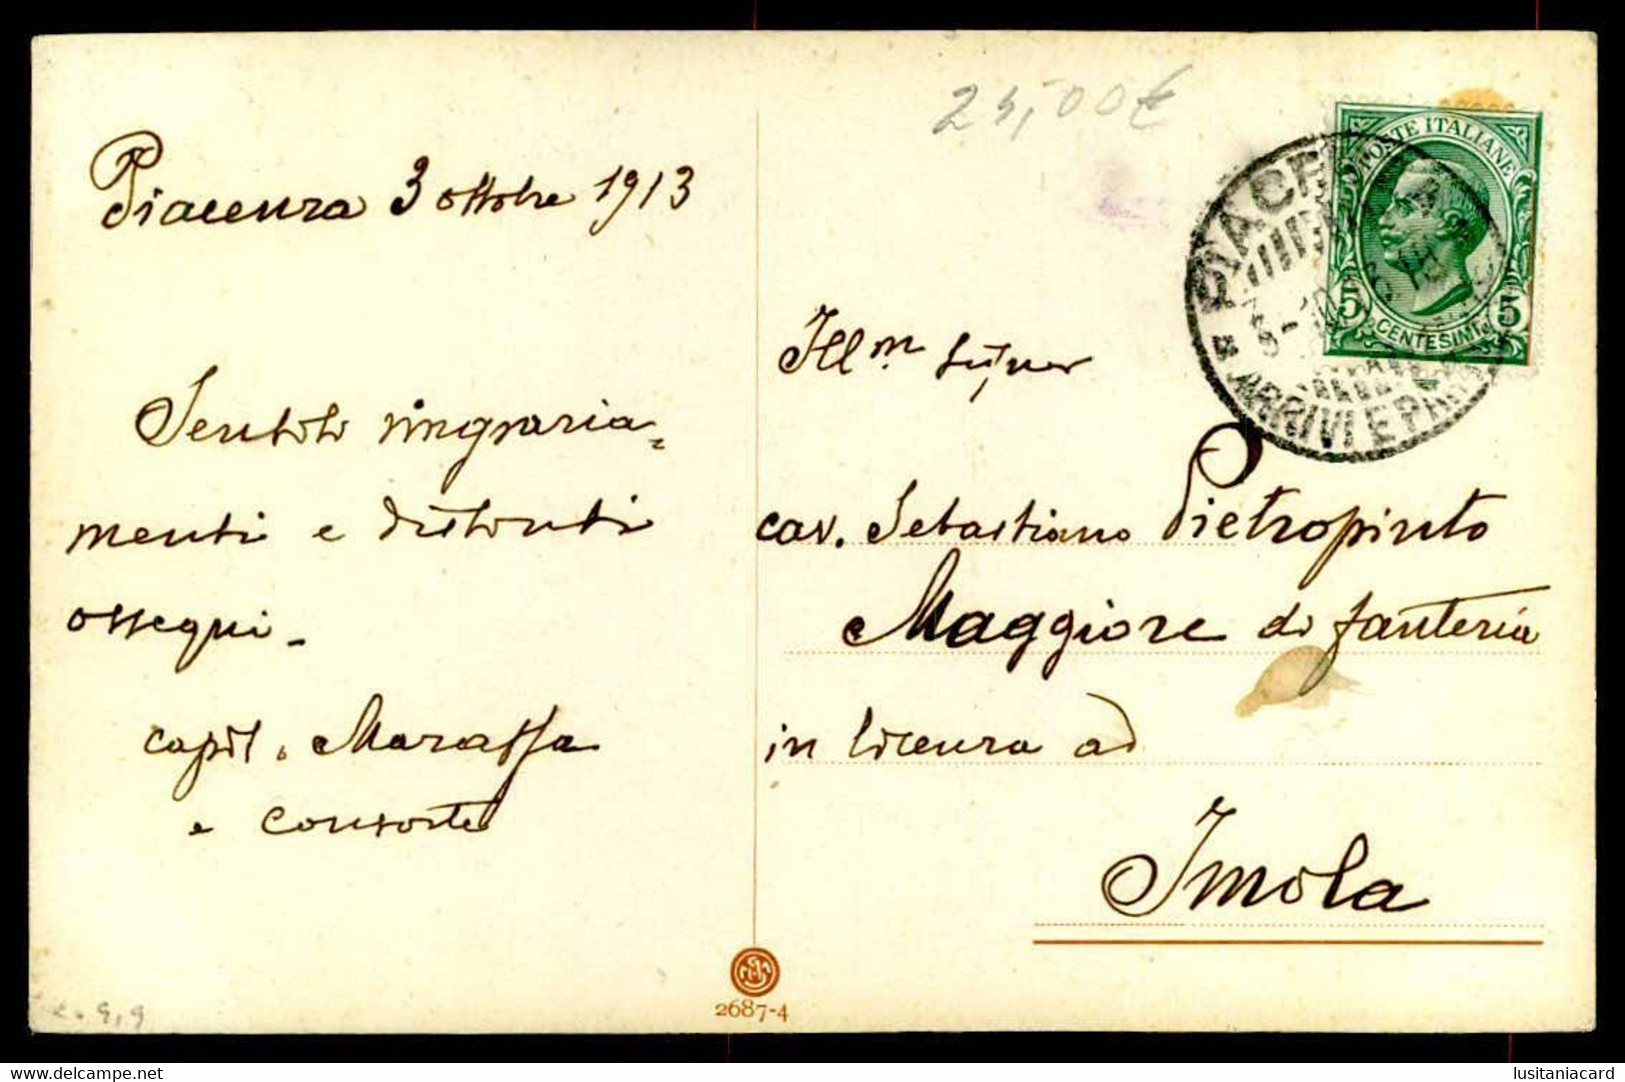 Piacenza 3 ottobre 1913
Sentiti ringrazia=
menti e distinti
ossequi -
capit. Maraffa
e consorte
25,00€
POSTE ITALIANE
5 CENTESIMI 5
PIACENZA
ARRIVI E PART
Ill.m Signor
cav. Sebastiano Pietropinto
Maggiore di fanteria
in licenza ad
Imola
2687-4
delcampe.net
lusitaniacard